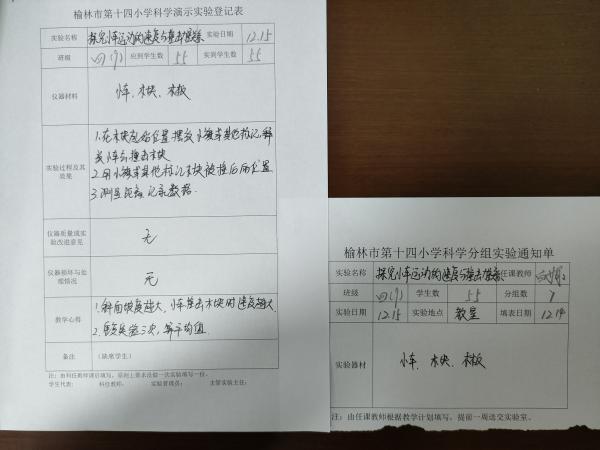 榆林市第十四小学科学演示实验登记表
实验名称 探究小车运动的速度与撞击 实验日期 12.15
班级 四(9) 应到学生数 55 实到学生数 55
仪器材料 小车、木块、木板
实验过程及其效果
1.在木块起始位置摆放小旗或其他标记,释
放小车后撞击木块
2.用小旗或其他标记木块被撞后的位置
3.测量距离,记录数据.
仪器质量或实验改进意见 无
仪器损坏与处赔情况 无
教学心得
1.斜面坡度越大,小车撞击木块时速度越大.
2.重复实验三次,算平均值
备注 (缺席学生)
注:由科任教师课后填写,原则上要求没做一次实验填写一份。
学生代表: 科任教师: 实验管理员: 主管实验主任:
榆林市第十四小学科学分组实验通知单
实验名称 探究小车运动的速度与撞击 任课教师
班级 四(9) 学生数 55 分组数
实验日期 12.15 实验地点 教室 填表日期 12.14
实验器材 小车、木块、木板
注:由任课教师根据教学计划填写,提前一周送交实验室。